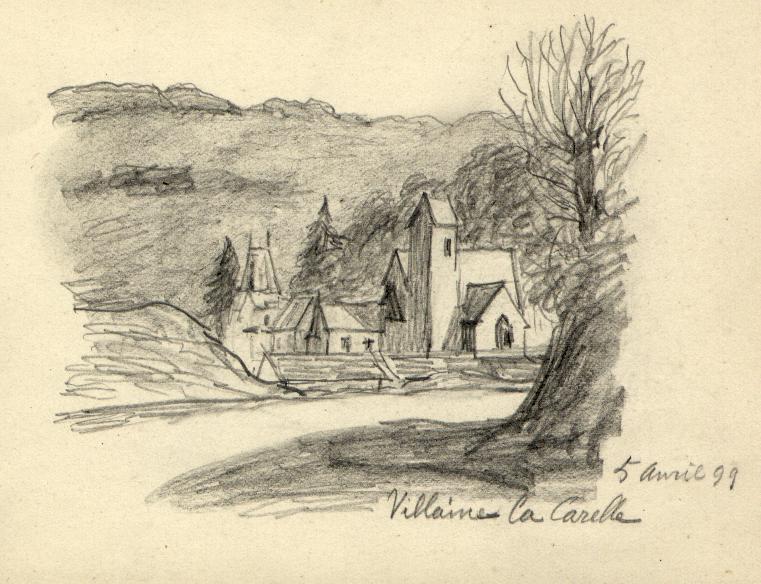 5 Avril 99
Villaine La Carelle